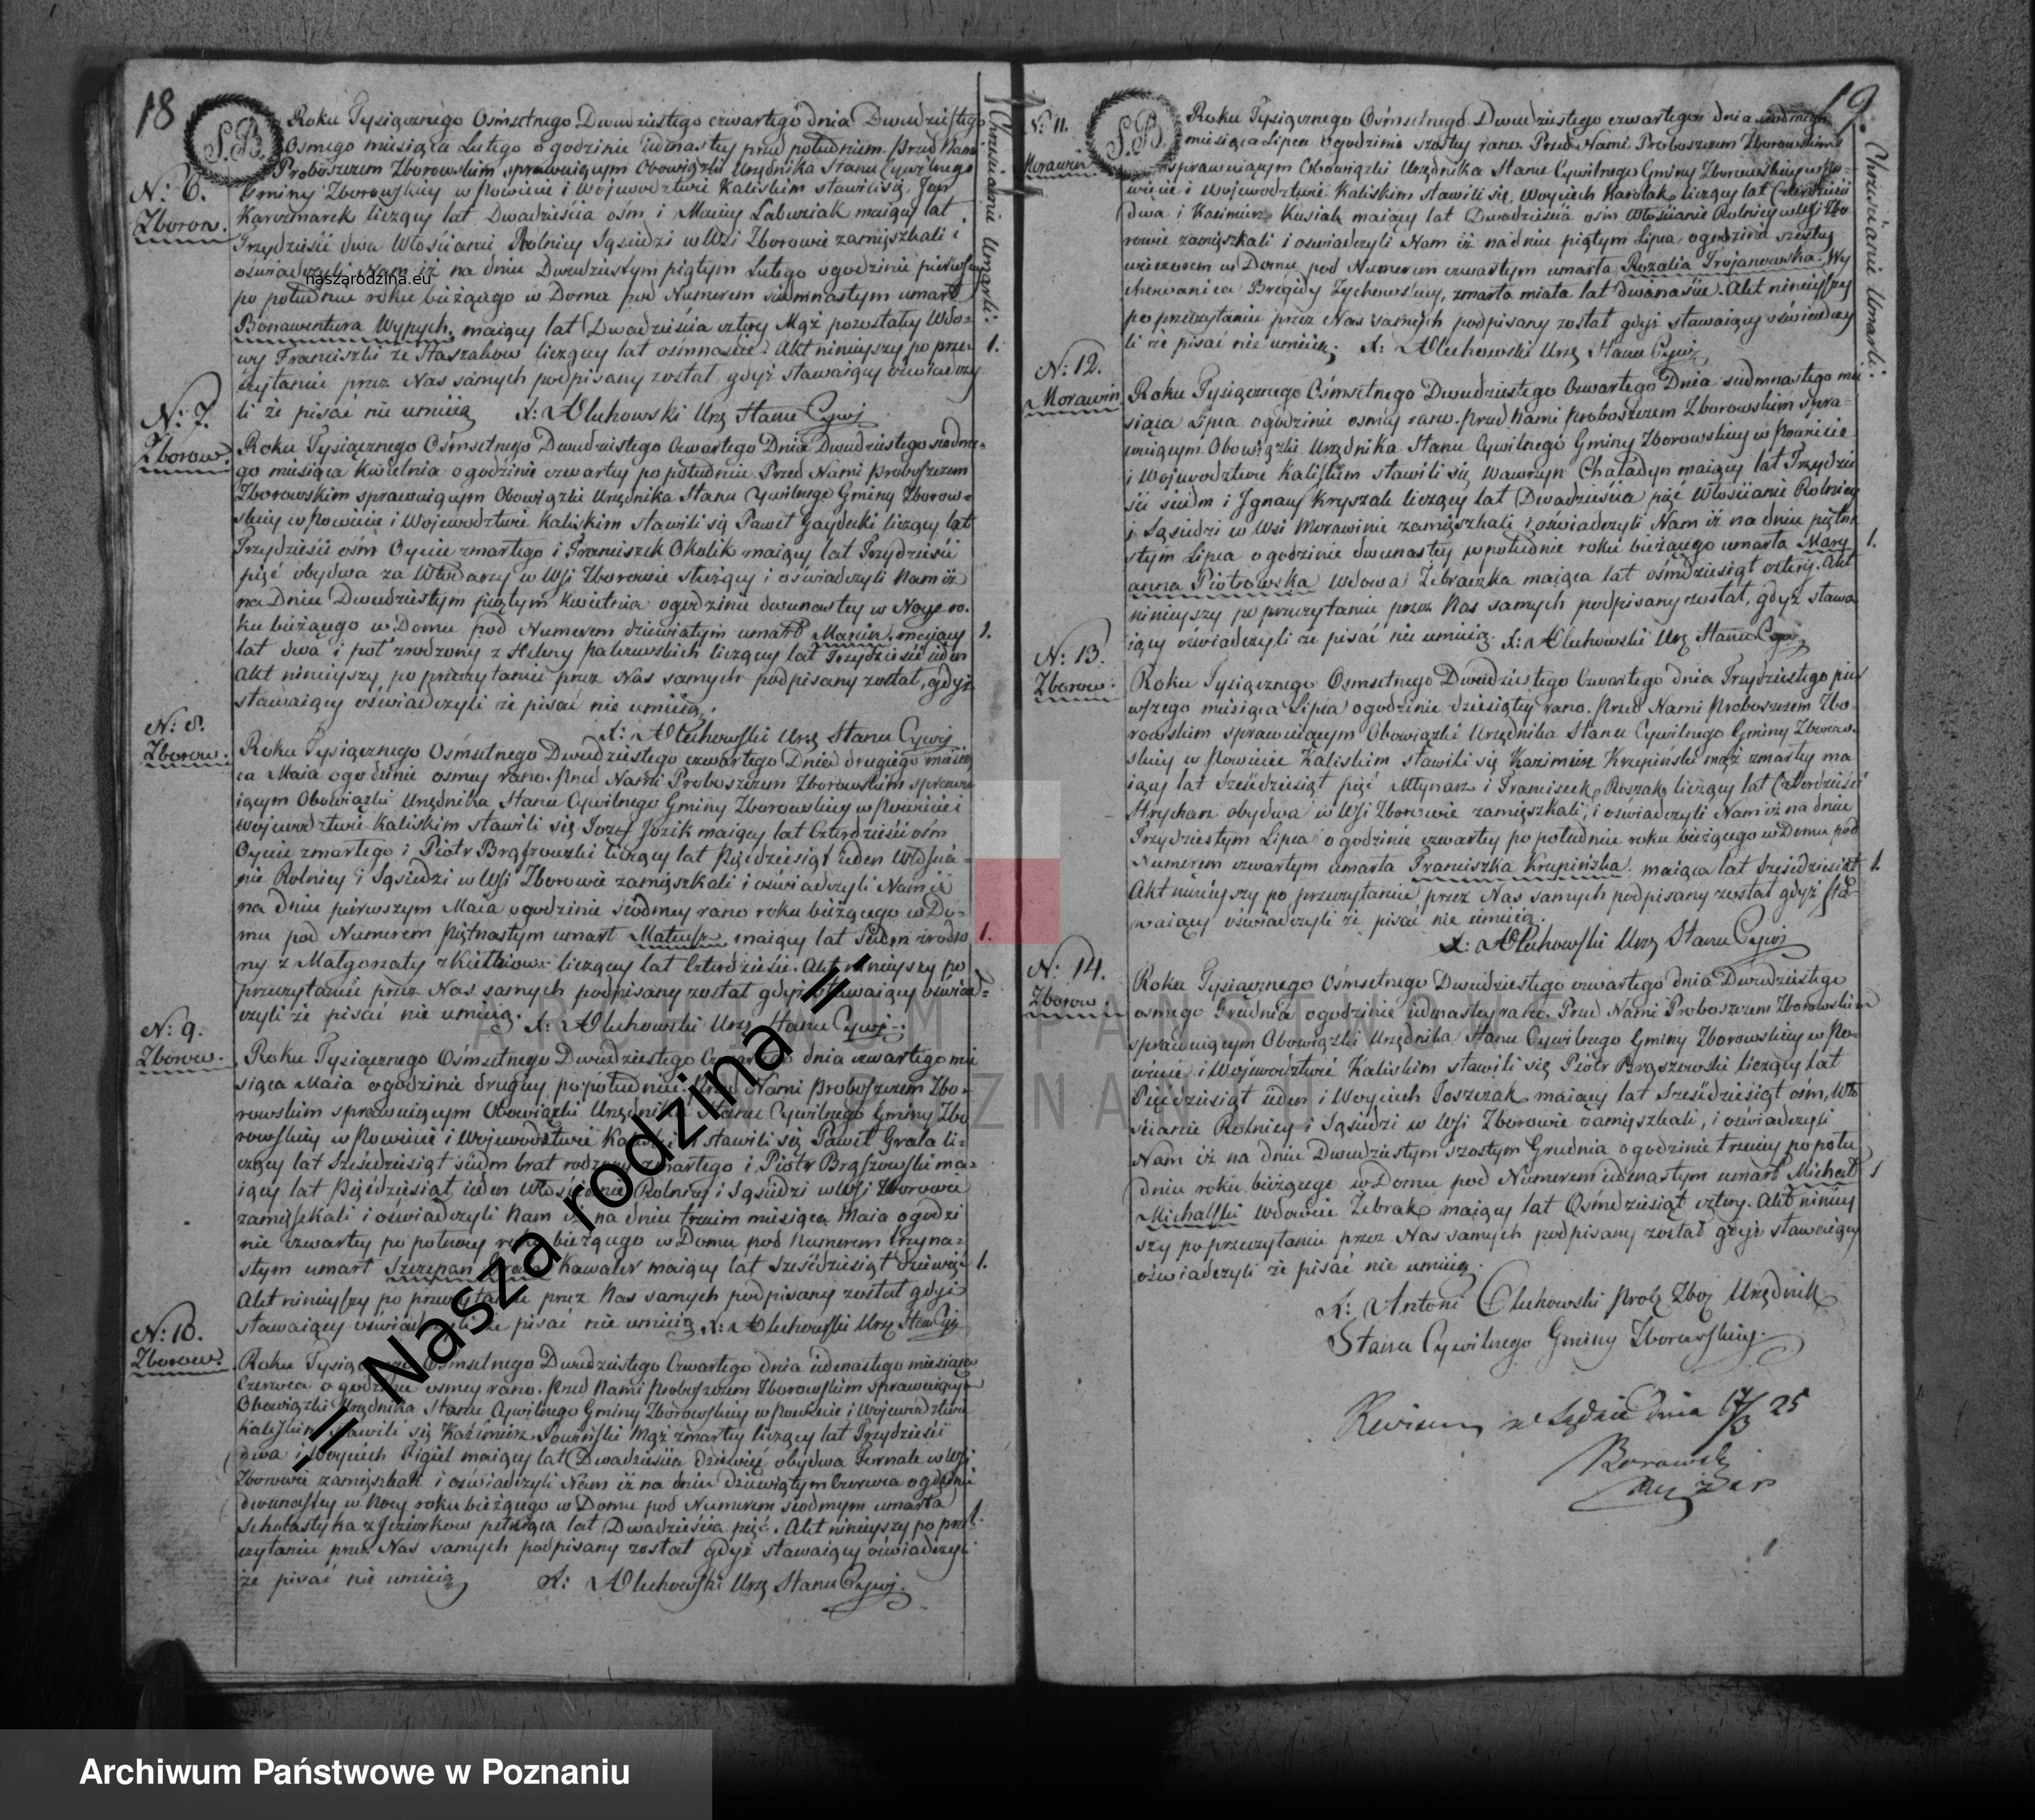 18
S.B.
Roku Tysiącznego Osmsetnego Dwudziestego czwartego dnia Dwudziestego
Osmego miesiąca Lutego o godzinie iedenastey przed południem. Przed Nami
Proboszczem Zborowskim sprawuiącym Obowiązki Urzędnika Stanu Cywilnego
N: 6.
Gminy Zborowskiey w Powiecie i Woiewodztwie Kaliskim stawili się, Jan
Zborow.
Karczmarek liczący lat Dwadzieścia ośm i Maciey Labuziak maiący lat
Trzydzieści dwa Włościanie Rolnicy Sąsiedzi w Wsi Zborowie zamięszkali i
oświadczyli Nam iż na dniu Dwudziestym piątym Lutego o godzinie pierwszey
naszarodzina.eu
po południu roku bieżącego w Domu pod Numerem siedmnastym umarł
Bonawentura Wypych, maiący lat Dwadzieścia cztery Mąż pozostałey Wdo-
wy Franciszki ze Staszaków liczącey lat ośmnaście. Akt ninieyszy po prze- 1.
czytaniu przez Nas samych podpisany został gdyż stawaiący oświadczy
li że pisać nie umieią X: AOluhowski Urzę Stanu Cywi
Chrześcianie Umarli.
N: 7.
Zborow.
Roku Tysiącznego Ośmsetnego Dwudziestego Czwartego Dnia Dwudziestego siodme-
go miesiąca Kwietnia o godzinie czwartey po południu Przed Nami Proboszczem
Zborowskim sprawuiącym Obowiązki Urzędnika Stanu Cywilnego Gminy Zborow-
skiey w Powiecie i Woiewodztwie Kaliskim stawili się Paweł Gaydecki liczący lat
Trzydzieści ośm Oyciec zmarłego i Franciszek Okolik maiący lat Trzydzieści
pięć obydwa za Włodarzy w Wsi Zborowie służący i oświadczyli Nam iż
na Dniu Dwudziestym piątym Kwietnia o godzinie dwunastey w Nocy ro-
ku bieżącego w Domu pod Numerem dziewiątym umarł Marcin, maiący 1.
lat dwa i poł zrodzony z Heleny liczącey lat Trzydzieście ieden
Akt ninieyszy po przeczytaniu przez Nas samych podpisany został, gdyż
stawaiący oświadczyli iż pisać nie umieią.
X: AOluhowski Urzę Stanu Cywi
N: 8.
Zborow.
Roku Tysiącznego Ośmsetnego Dwudziestego czwartego Dnia drugiego miesią
ca Maia o godzinie osmey rano. Przed Nami Proboszczem Zborowskim sprawu
iącym Obowiązki Urzędnika Stanu Cywilnego Gminy Zborowskiey w Powiecie i
Woiewodztwie Kaliskim stawili się Jozef Jozik maiący lat Czterdzieści ośm
Oyciec zmarłego i Piotr Brąszowski liczący lat Pięćdziesiąt ieden Włościa-
nie Rolnicy i Sąsiedzi w Wsi Zborowie zamięszkali i oświadczyli Nam iż
na dniu pierwszym Maia o godzinie siodmey rano roku bieżącego w Do-
mu pod Numerem Piętnastym umarł Mateusz maiący lat Siedm zrodzo 1.
ny z Małgorzaty liczącey lat Czterdzieście. Akt ninieyszy po
przeczytaniu przez Nas samych podpisany został gdyż stawaiący oświad-
czyli że pisać nie umieią. X: AOluhowski Urzę Stanu Cywi:
N: 9.
Zborow.
Roku Tysiącznego Ośmsetnego Dwudziestego Czwartego dnia czwartego mie
siąca Maia o godzinie drugiey po południu. Przed Nami Proboszczem Zbo-
rowskim sprawuiącym Obowiązki Urzędnika Stanu Cywilnego Gminy Zbo
rowskiey w Powiecie i Woiewodztwie Kaliskim stawili się Paweł Grala li-
czący lat Sześćdziesiąt siedm brat rodzony zmarłego i Piotr Brąszowski ma-
iący lat Pięćdziesiąt ieden Włościanie Rolnicy i Sąsiedzi w Wsi Zborowie
zamięszkali i oświadczyli Nam iż na dniu trzecim miesiąca Maia o godzi
nie czwartey po roku bieżącego w Domu pod Numerem Trzyna-
stym umarł Szczepan Grala Kawaler maiący lat Sześćdziesiąt dziewięć 1.
Akt ninieyszy po przeczytaniu przez Nas samych podpisany został gdyż
stawaiący oświadczyli że pisać nie umieią X: AOluhowski Urzę Stan Cy
N: 10.
Zborow.
Roku Tysiącznego Ośmsetnego Dwudziestego Czwartego dnia iedenastego miesiąca
Czerwca o godzinie osmey rano. Przed Nami Proboszczem Zborowskim sprawuiącym
Obowiązki Urzędnika Stanu Cywilnego Gminy Zborowskiey w Powiecie i Woiewodztwie
Kaliskim stawili się Kazimierz Mąż zmarłey liczący lat Trzydzieści
dwa i Woyciech Figiel maiący lat Dwadzieścia dziewięć obydwa Fornale w Wsi
Zborowie zamięszkali i oświadczyli Nam iż na dniu Dziewiątym Czerwca o godzinie
dwunastey w Nocy roku bieżącego w Domu pod Numerem siodmym umarła
Scholastyka z Jeziorkow maiąca lat Dwadzieścia pięć. Akt ninieyszy po prze 1.
czytaniu przez Nas samych podpisany został gdyż stawaiący oświadczyli
że pisać nie umieią X: AOluhowski Urzę Stanu Cywi.
19.
N: 11.
Morawin
S.B.
Roku Tysiącznego Ośmsetnego Dwudziestego czwartego dnia siodmego
miesiąca Lipca o godzinie szostey rano. Przed Nami Proboszczem Zborowskim
sprawuiącym Obowiązki Urzędnika Stanu Cywilnego Gminy Zborowskiey w Po-
wiecie i Woiewodztwie Kaliskim stawili się, Woyciech Karolak liczący lat Czterdzieści
dwa i Kazimierz Kusiak maiący lat Dwadzieścia ośm Włościanie Rolnicy w Wsi Zbo
rowie zamięszkali i oświadczyli Nam iż na dniu piątym Lipca o godzinie szostey
wieczorem w Domu pod Numerem czwartym umarła Rozalia Trojanowska. Wy
chowanica Brigidy Zychowskiey, zmarła miała lat dwanaście. Akt ninieyszy
po przeczytaniu przez Nas samych podpisany został gdyż stawaiący oświadczy
li że pisać nie umieią. X: AOluhowski Urzę Stanu Cywi
Chrześcianie Umarli.
N: 12.
Morawin
Roku Tysiącznego Ośmsetnego Dwudziestego Czwartego Dnia siedmnastego mie
siąca Lipca o godzinie osmey rano. Przed Nami Proboszczem Zborowskim spra-
wuiącym Obowiązki Urzędnika Stanu Cywilnego Gminy Zborowskiey w Powiecie
i Woiewodztwie Kaliskim stawili się Wawrzyn Chaładyn maiący lat Trzydzie
ści siedm i Ignacy Kryszak liczący lat Dwadzieścia pięć Włościanie Rolnicy
i Sąsiedzi w Wsi Morawinie zamięszkali i oświadczyli Nam iż na dniu piętna
stym Lipca o godzinie dwunastey w południe roku bieżącego umarła Mary 1.
anna Piotrowska Wdowa Żebraczka maiąca lat ośmdziesiąt cztery. Akt
ninieyszy po przeczytaniu przez Nas samych podpisany został, gdyż stawa
iący oświadczyli że pisać nie umieią. X: AOluhowski Urzę Stanu Cywi
N: 13.
Zborow.
Roku Tysiącznego Osmsetnego Dwudziestego Czwartego dnia Trzydziestego pier
wszego miesiąca Lipca o godzinie dziesiątey rano. Przed Nami Proboszczem Zbo-
rowskim sprawuiącym Obowiązki Urzędnika Stanu Cywilnego Gminy Zborow-
skiey w Powiecie Kaliskim stawili się Kazimierz Krzepiński mąż zmarłey ma
iący lat Sześćdziesiąt pięć Młynarz i Franciszek Roszak liczący lat Czterdzieści
Strycharz obydwa w Wsi Zborowie zamięszkali, i oświadczyli Nam iż na dniu
Trzydziestym Lipca o godzinie czwartey po południu roku bieżącego w Domu pod
Numerem czwartym umarła Franciszka Krzepińska. maiąca lat Sześćdziesiąt 1.
Akt ninieyszy po przeczytaniu przez Nas samych podpisany został gdyż sta-
waiący oświadczyli że pisać nie umieią.
X: AOluhowski Urzę Stanu Cywi
N: 14.
Zborow
Roku Tysiącznego Ośmsetnego Dwudziestego czwartego dnia Dwudziestego
osmego Grudnia o godzinie iedenastey rano. Przed Nami Proboszczem Zborowskim
sprawuiącym Obowiązki Urzędnika Stanu Cywilnego Gminy Zborowskiey w Po-
wiecie i Woiewodztwie Kaliskim stawili się Piotr Brąszowski liczący lat
Pięćdziesiąt ieden i Woyciech Joszczak maiący lat Sześćdziesiąt ośm, Wło
ścianie Rolnicy i Sąsiedzi w Wsi Zborowie zamięszkali, i oświadczyli
Nam iż na dniu Dwudziestym szostym Grudnia o godzinie trzeciey po połu
dniu roku bieżącego w Domu pod Numerem iedenastym umarł Michał 1
Michalski Wdowiec Żebrak maiący lat Ośmdziesiąt cztery. Akt niniey
szy po przeczytaniu przez Nas samych podpisany został gdyż stawaiący
oświadczyli że pisać nie umieią.
X: Antoni Oluhowski Prob Zbo Urzędnik
Stanu Cywilnego Gminy Zborowskiey.
w Sądzie dnia 17/3 25
ARCHIWUM PAŃSTWOWE
W POZNANIU
-= Nasza rodzina =-
Archiwum Państwowe w Poznaniu